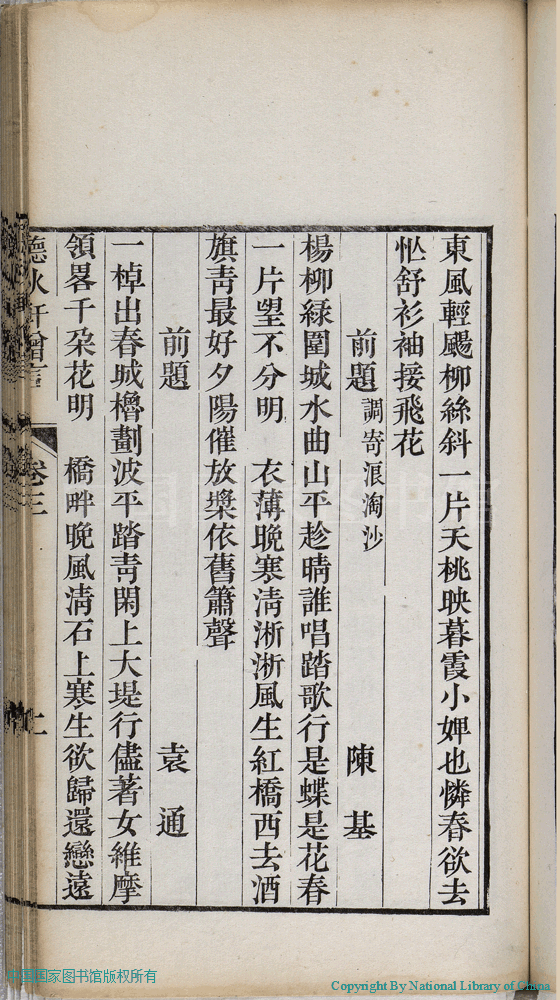 東風輕颺柳絲斜一片天桃映暮霞小婢也憐春欲去
忙舒衫袖接飛花
前題調寄浪淘沙 陳基
楊柳綠圍城水曲山平趁晴誰唱踏歌行是蝶是花春
一片望不分明 衣薄晚寒淸淅淅風生紅橋西去酒
旗靑最好夕陽催放槳依舊簫聲
前題 袁通
一棹出春城櫓劃波平踏靑閑上大堤行儘著女維摩
領畧千朶花明 橋畔晚風淸石上寒生欲歸還戀遠
卷三
中国国家图书馆版权所有
Copyright By National Library of China